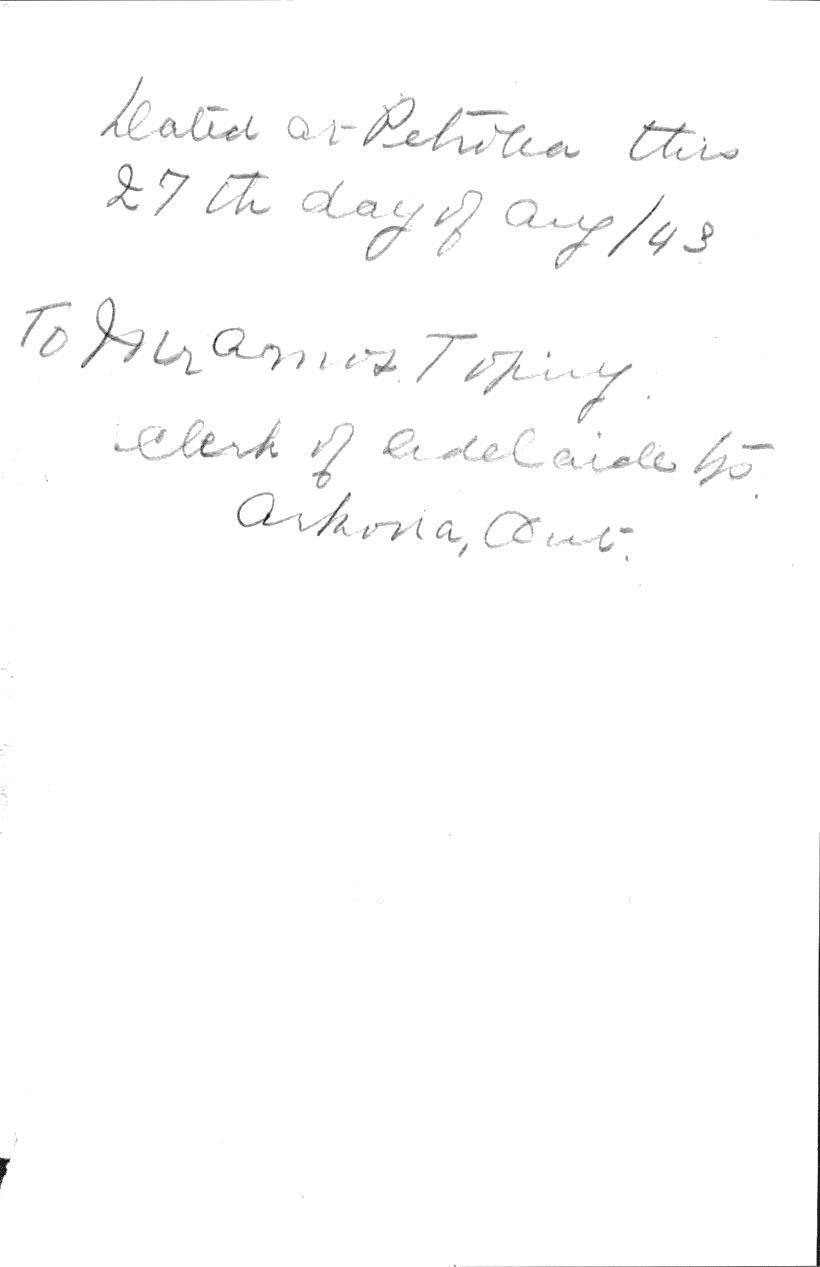 Dated at Petrolea this
27th day of Aug/43
To Mr Amos Topiny.
Clerk of Adelaide Tp.
Arkona, Ont.